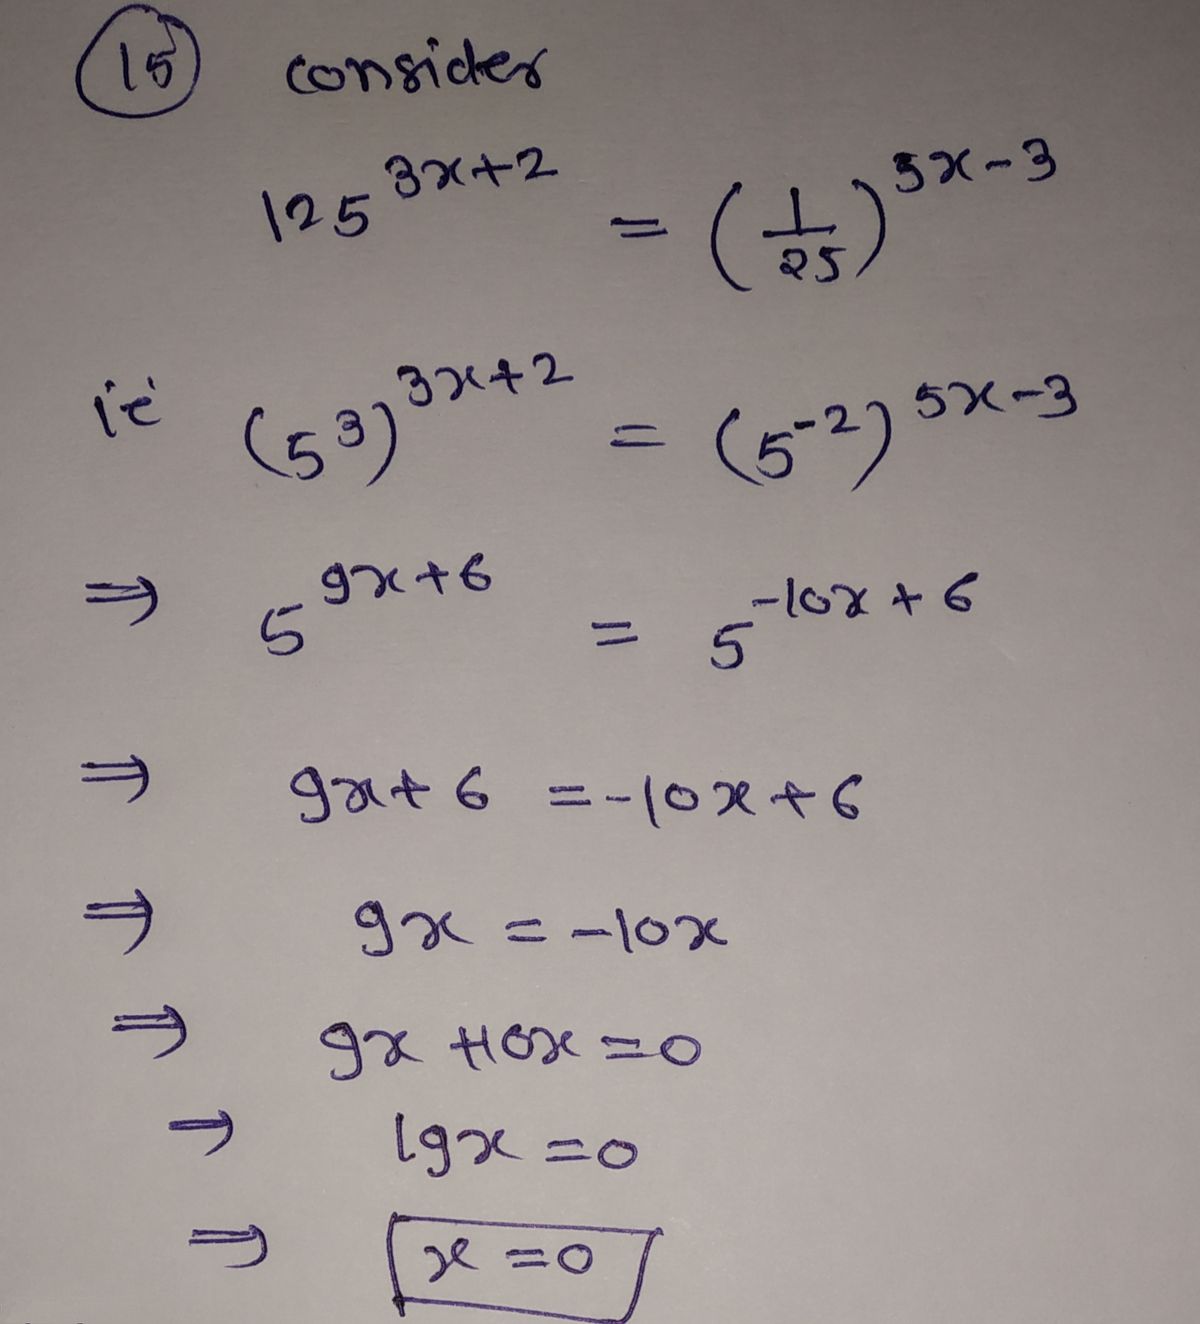 15 consider
125^{3x+2} = (1/25)^{5x-3}
ie (5^3)^{3x+2} = (5^{-2})^{5x-3}
⇒ 5^{9x+6} = 5^{-10x+6}
⇒ 9x+6 = -10x+6
⇒ 9x = -10x
⇒ 9x +10x = 0
⇒ 19x = 0
⇒ x = 0